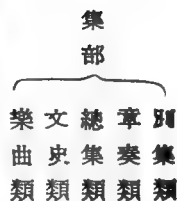 集部
別集類
章奏類
總集類
文史類
樂曲類